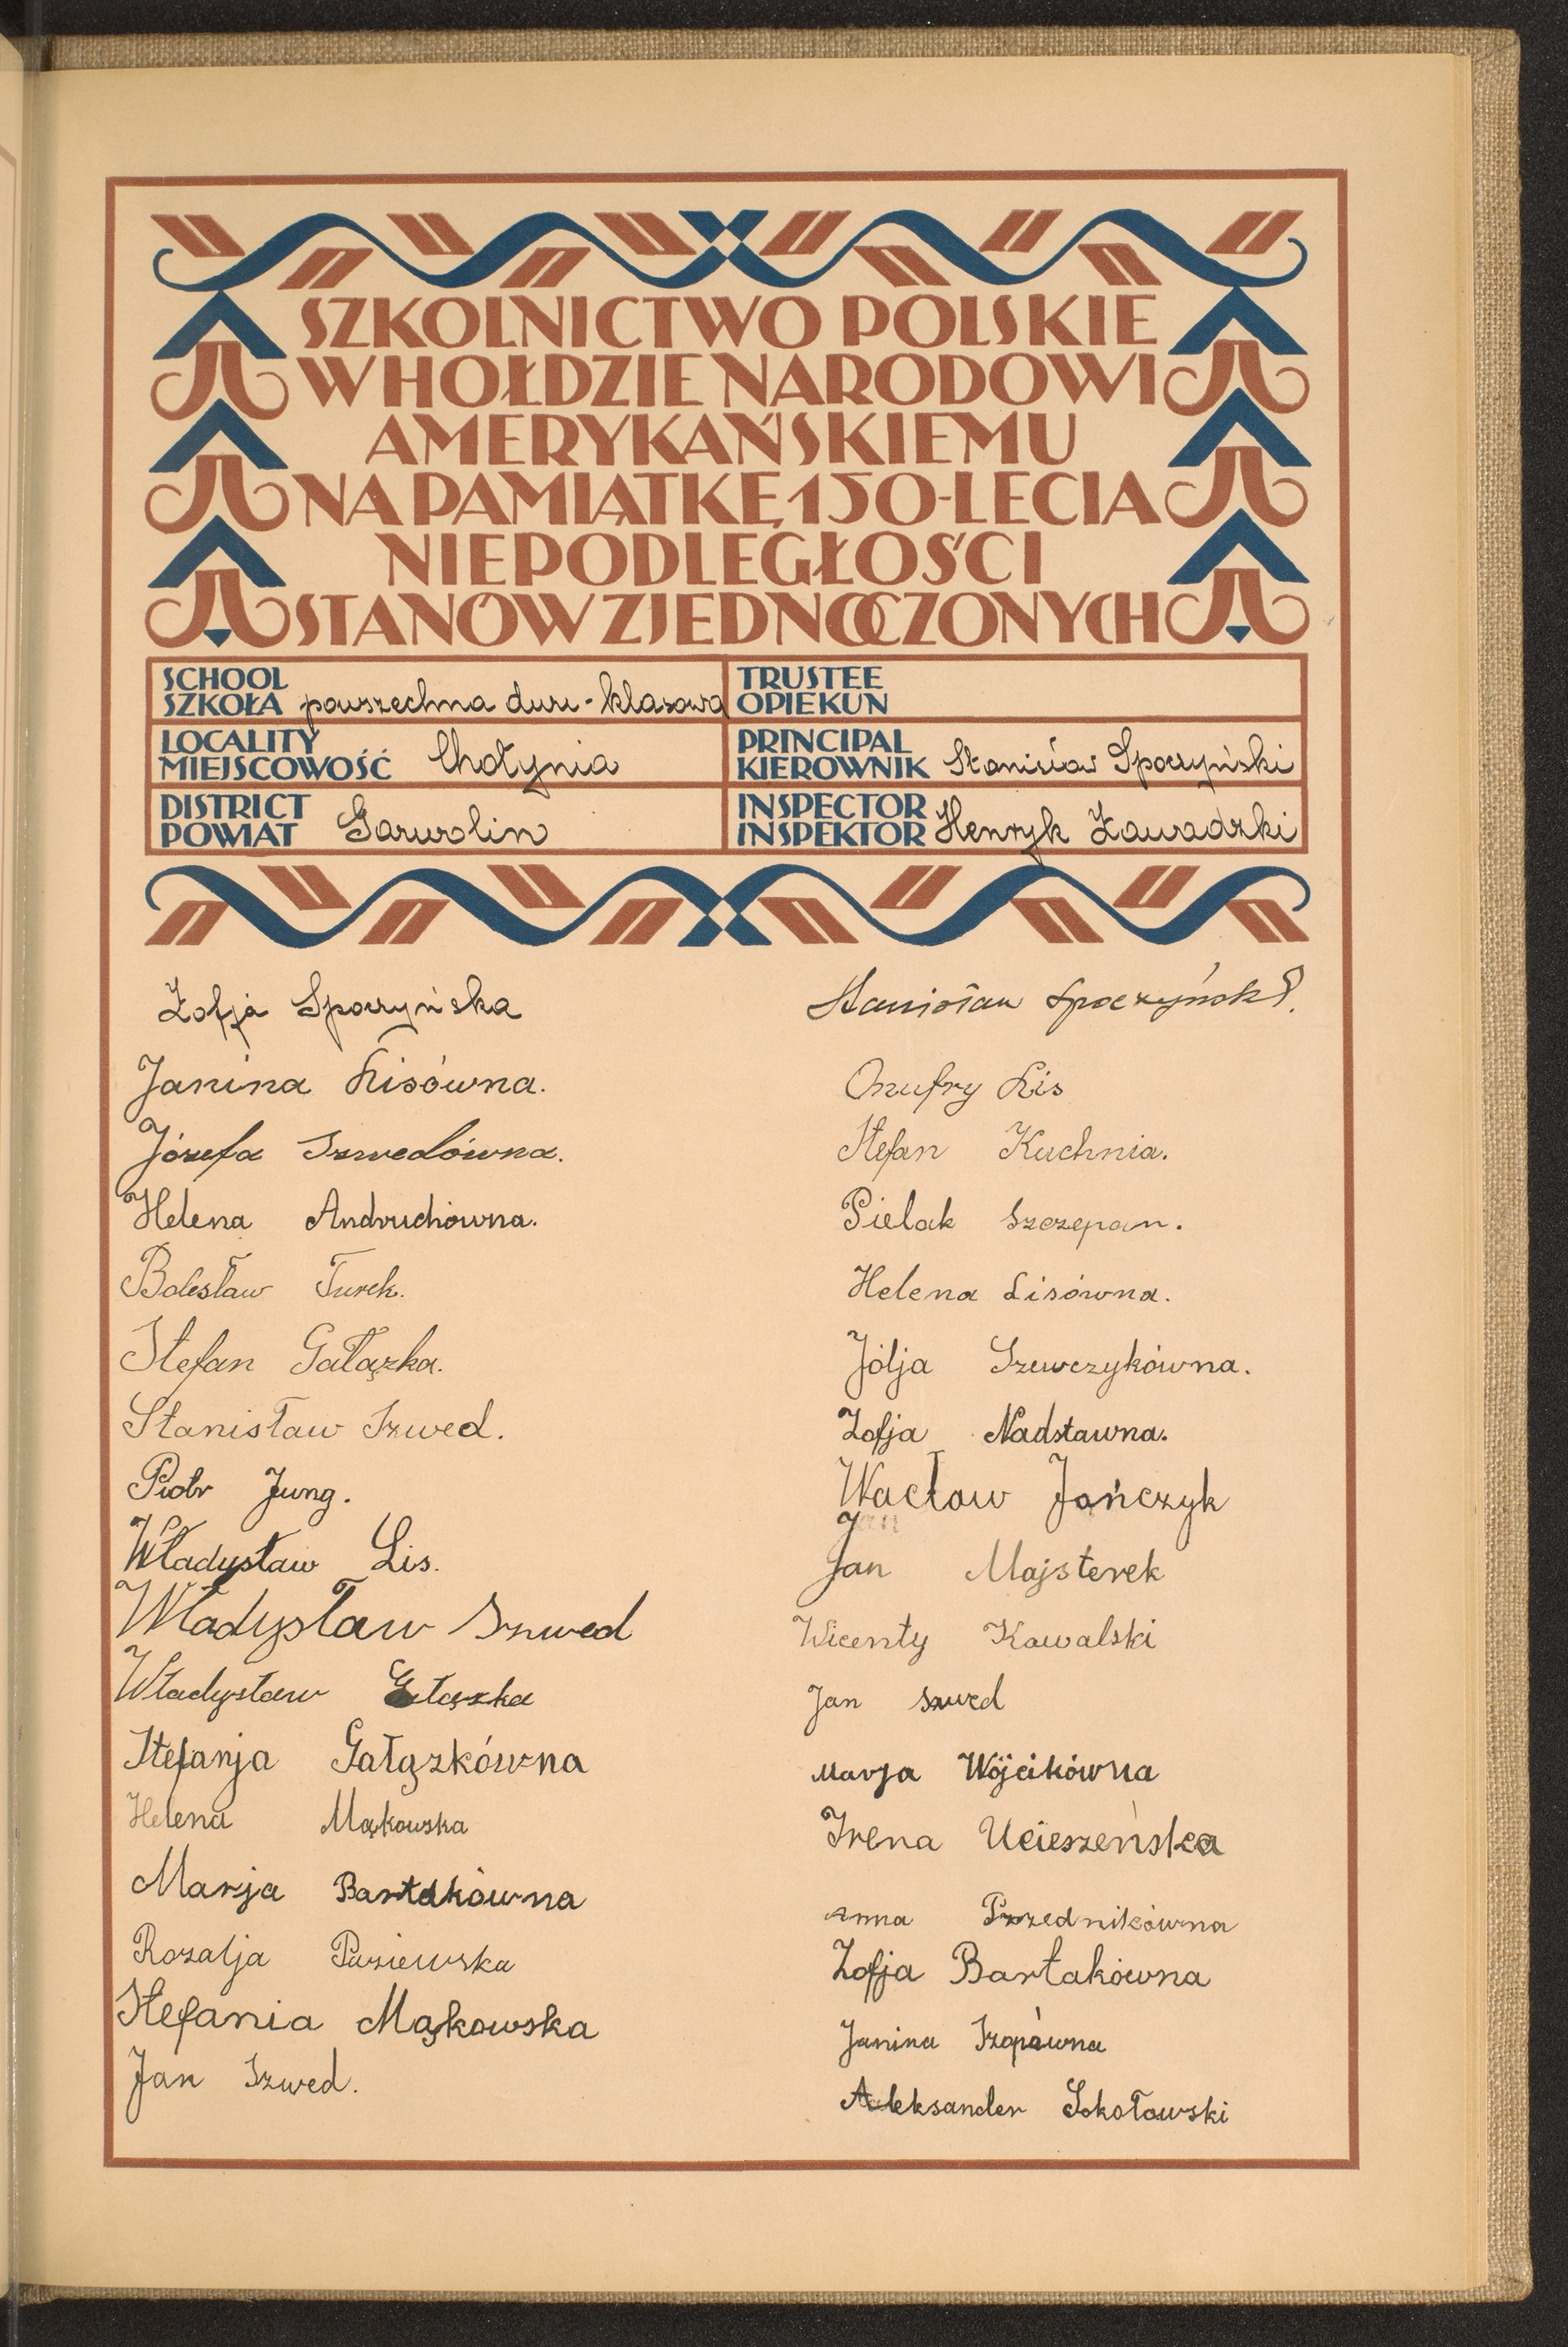 SZKOLNICTWO POLSKIE
W HOŁDZIE NARODOWI
AMERYKAŃSKIEMU
NA PAMIĄTKĘ 150-LECIA
NIEPODLEGŁOŚCI
STANÓW ZJEDNOCZONYCH
SCHOOL
SZKOŁA powszechna dwu-klasowa
TRUSTEE
OPIEKUN
LOCALITY
MIEJSCOWOŚĆ Chotynia
PRINCIPAL
KIEROWNIK Stanisław Spoczyński
DISTRICT
POWIAT Garwolin
INSPECTOR
INSPEKTOR Henryk Zawadzki
Zofja Spoczyńska
Janina Lisówna.
Józefa Szwedówna.
Helena Andruchówna.
Bolesław Turek.
Stefan Gałązka.
Stanisław Szwed.
Piotr Jung.
Władysław Lis.
Władysław Szwed
Władysław
Stefanja Gałązkówna
Helena Mąkowska
Marja Bartakówna
Rozalja Paziewska
Stefania Mąkowska
Jan Szwed.
Stanisław Spoczyński.
Onufry Lis
Stefan Kuchnia.
Pielak Szczepan.
Helena Lisówna.
Jólja Szewczykówna.
Zofja Nadstawna.
Wacław Jańczyk
Jan
Jan Majsterek
Wicenty Kowalski
Jan Szwed
Marja Wójcikówna
Irena Ucieszeńska
Anna Przednikówna
Zofja Bartakówna
Janina Szopówna
Aleksander Sokołowski